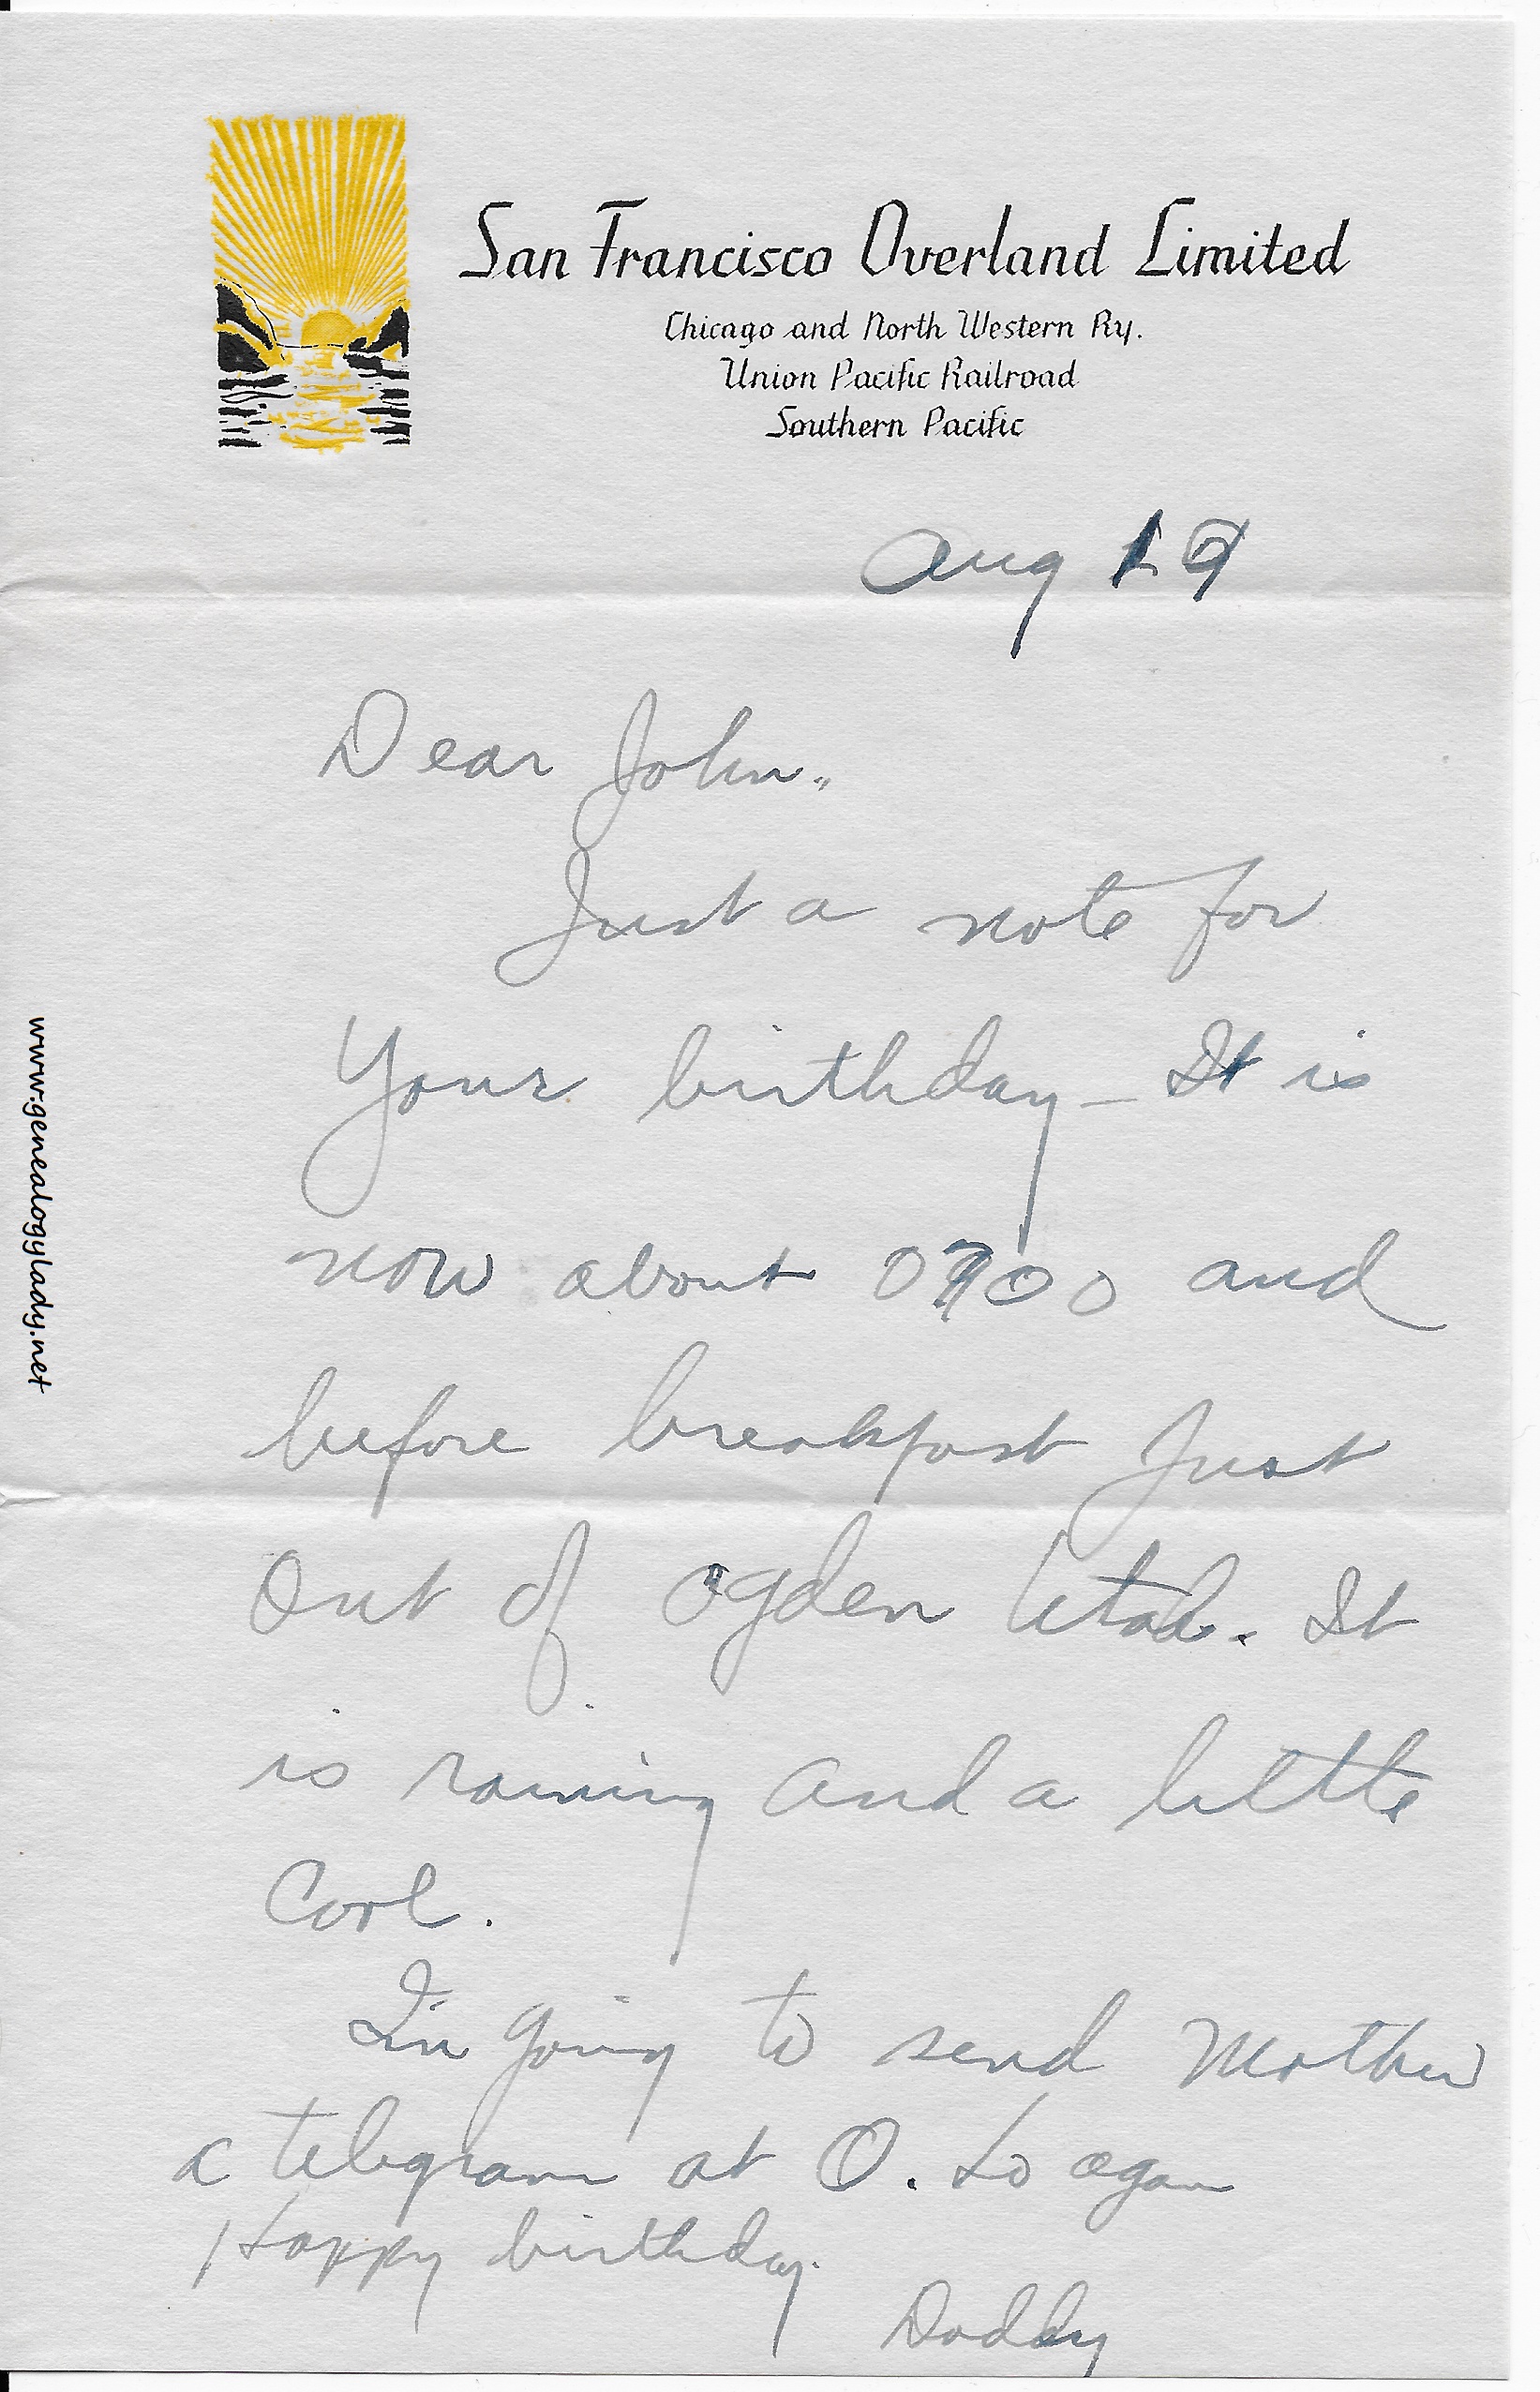 San Francisco Overland Limited
Chicago and North Western Ry.
Union Pacific Railroad
Southern Pacific
Aug 19
Dear John,
Just a note for
Your birthday – It is
now about 0700 and
before breakfast Just
Out of Ogden Utah. It
is raining and a little
Cool.
I'm going to send Mother
a telegram at O. So again
Happy birthday.
Daddy
www.genealogylady.net